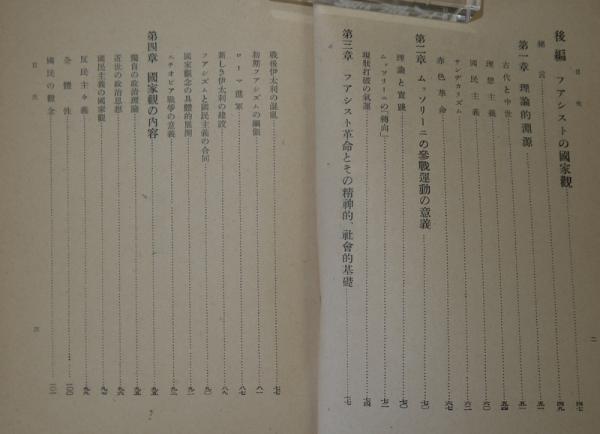 目次
二
後編 フアシストの國家觀 四七
緒言 四九
第一章 理論的淵源 五一
古代と中世 五四
理想主義 六〇
國民主義 六二
サンヂカリズム
赤色革命 六七
第二章 ムッソリーニの參戰運動の意義 七〇
理論と實踐 七〇
ムッソリーニの「轉向」 七二
現狀打破の氣運 七四
第三章 フアシスト革命とその精神的、社會的基礎 七七
戰後伊太利の混亂 七七
初期フアシズムの綱領 八一
ローマ進軍 八七
新しき伊太利の建設 八八
フアシズムと國民主義の合同 九〇
國家觀念の具體的展開 九二
エチオピア戰爭の意義 九三
第四章 國家觀の內容 九五
獨自の政治理論 九五
近世の政治思想 九六
國民主義の國家觀 九七
反民主々義 九九
全體性 一〇〇
國民の觀念 一〇二
目次
三